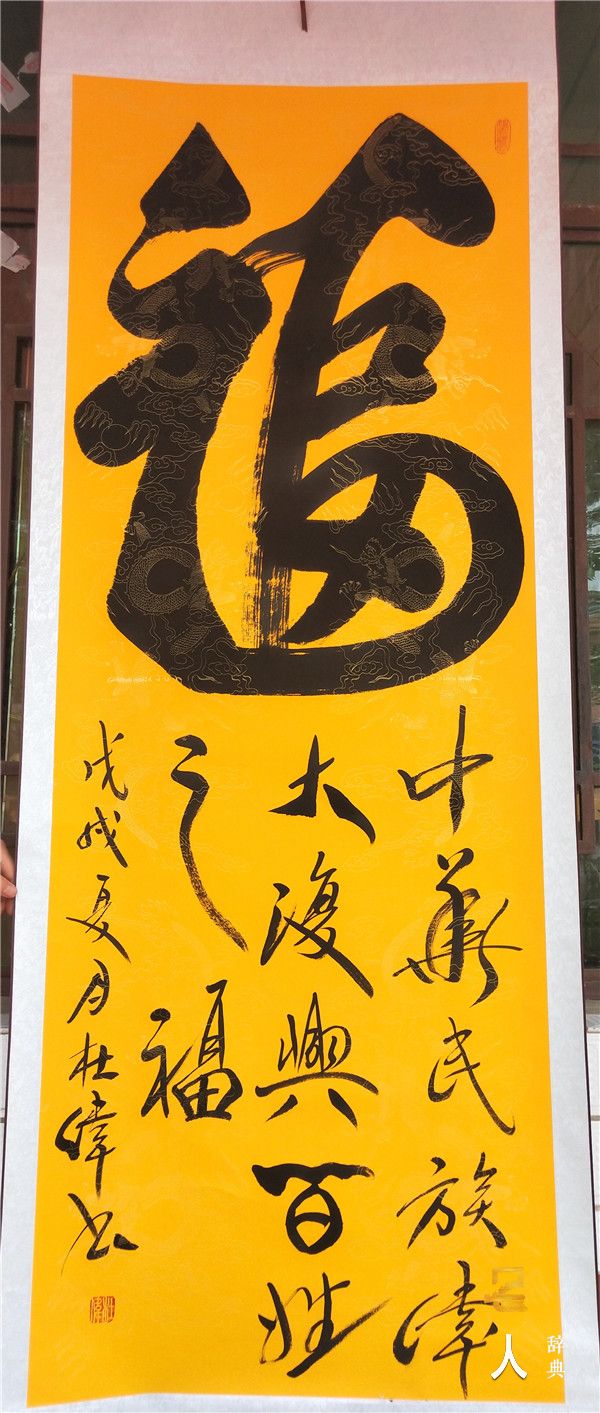 福
中華民族偉
大復興百姓
之福
戊戌夏月杜偉书
人 辞典